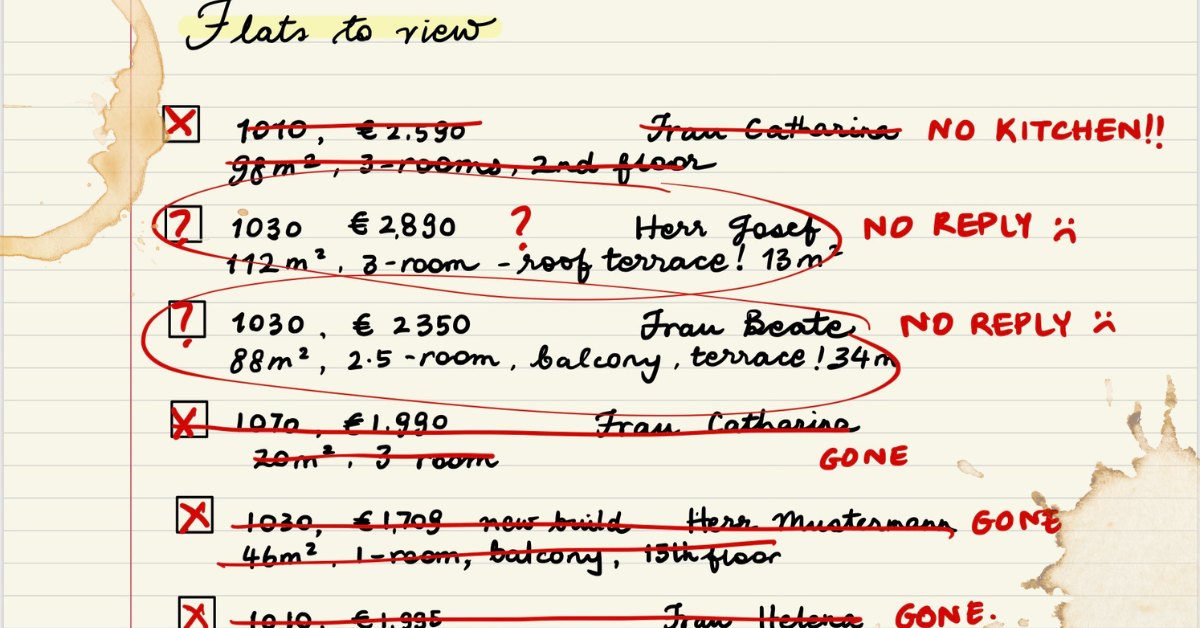 Flats to view
X 1010, € 2.590 Frau Catharina NO KITCHEN!!
98m², 3-rooms, 2nd floor
? 1030 € 2,890 ? Herr Josef NO REPLY :(
112m², 3-room - roof terrace! 13m²
? 1030, € 2350 Frau Beate NO REPLY :(
88m², 2.5-room, balcony, terrace! 34m
X 1070, € 1.990 Frau Catharina
20m², 3 room GONE
X 1030, € 1,709 new build Herr Mustermann GONE
46m², 1-room, balcony, 15th floor
X 1010, € 1,995 Frau Helena GONE.